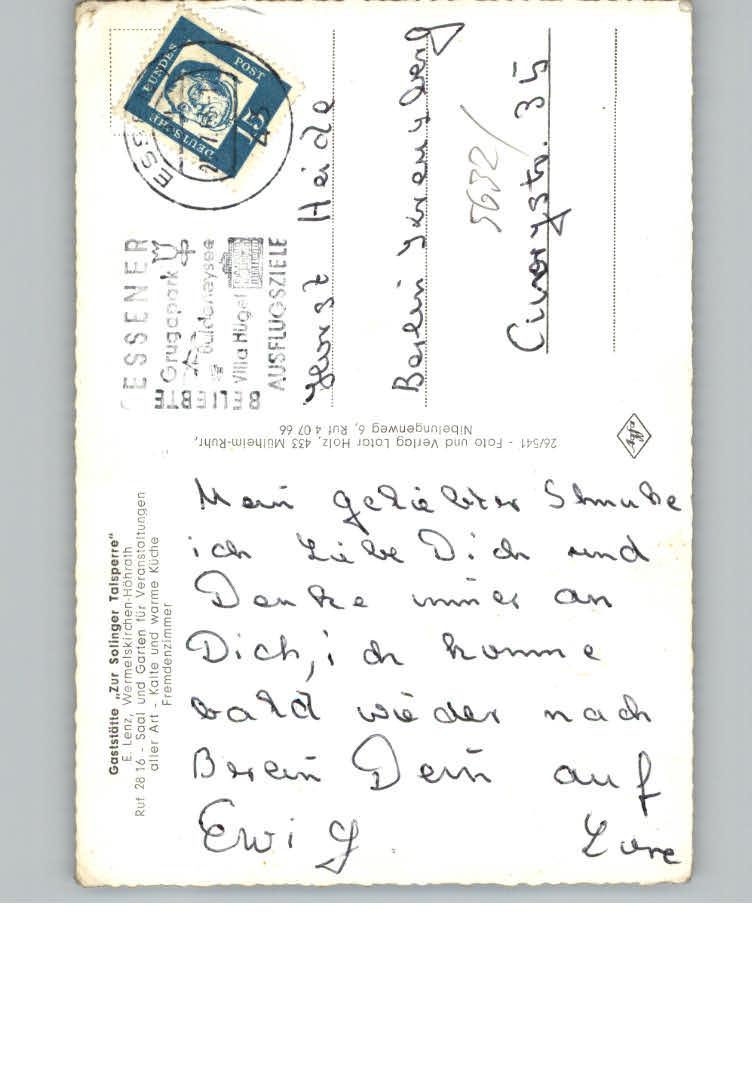 Gaststätte „Zur Solinger Talsperre"
E. Lenz, Wermelskirchen-Höhrath
Ruf 28 16 - Saal und Garten für Veranstaltungen
aller Art - Kalte und warme Küche
Fremdenzimmer
Mein geliebter Schnuke
ich Liebe Dich und
Denke immer an
Dich, ich komme
bald wieder nach
Berlin Dein auf
Ewig
Lore
26/541 - Foto und Verlag Lotar Holz, 433 Mülheim-Ruhr,
Nibelungenweg 6, Ruf 4 07 66
Agfa
DEUTSCHE
BUNDES
POST
15
ESSENER
Grugapark
Baldeneysee
Villa Hügel
BELIEBTE
AUSFLUGSZIELE
Horst Heide
Berlin Kreuzberg
5632/
35